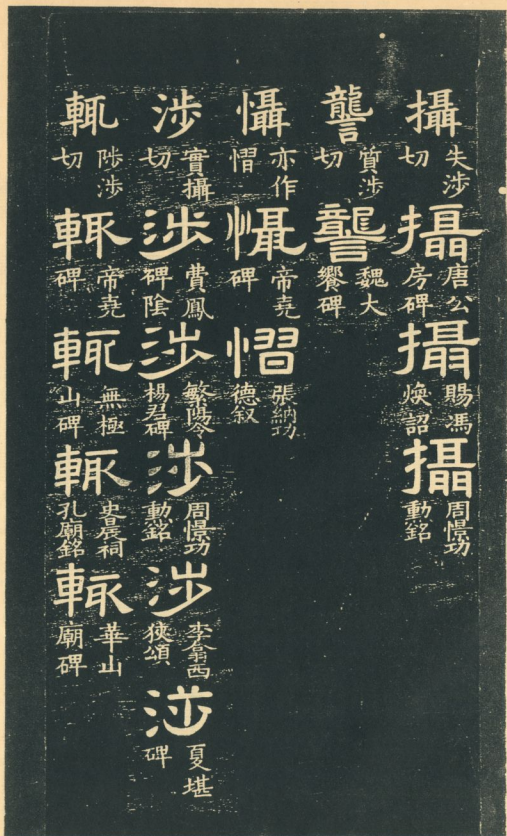 攝 失涉切 攝 唐公房碑 攝 賜馮煥詔 攝 周憬功勳銘
讋 質涉切 讋 魏大饗碑
懾 亦作慴 懾 帝堯碑 慴 張納功德叙
涉 實攝切 涉 費鳳碑陰 涉 繁陽令楊君碑 涉 周憬功勳銘 涉 李翕西狹頌 涉 夏堪碑
輒 陟涉切 輒 帝堯碑 輒 無極山碑 輒 史晨祠孔廟銘 輒 華山廟碑